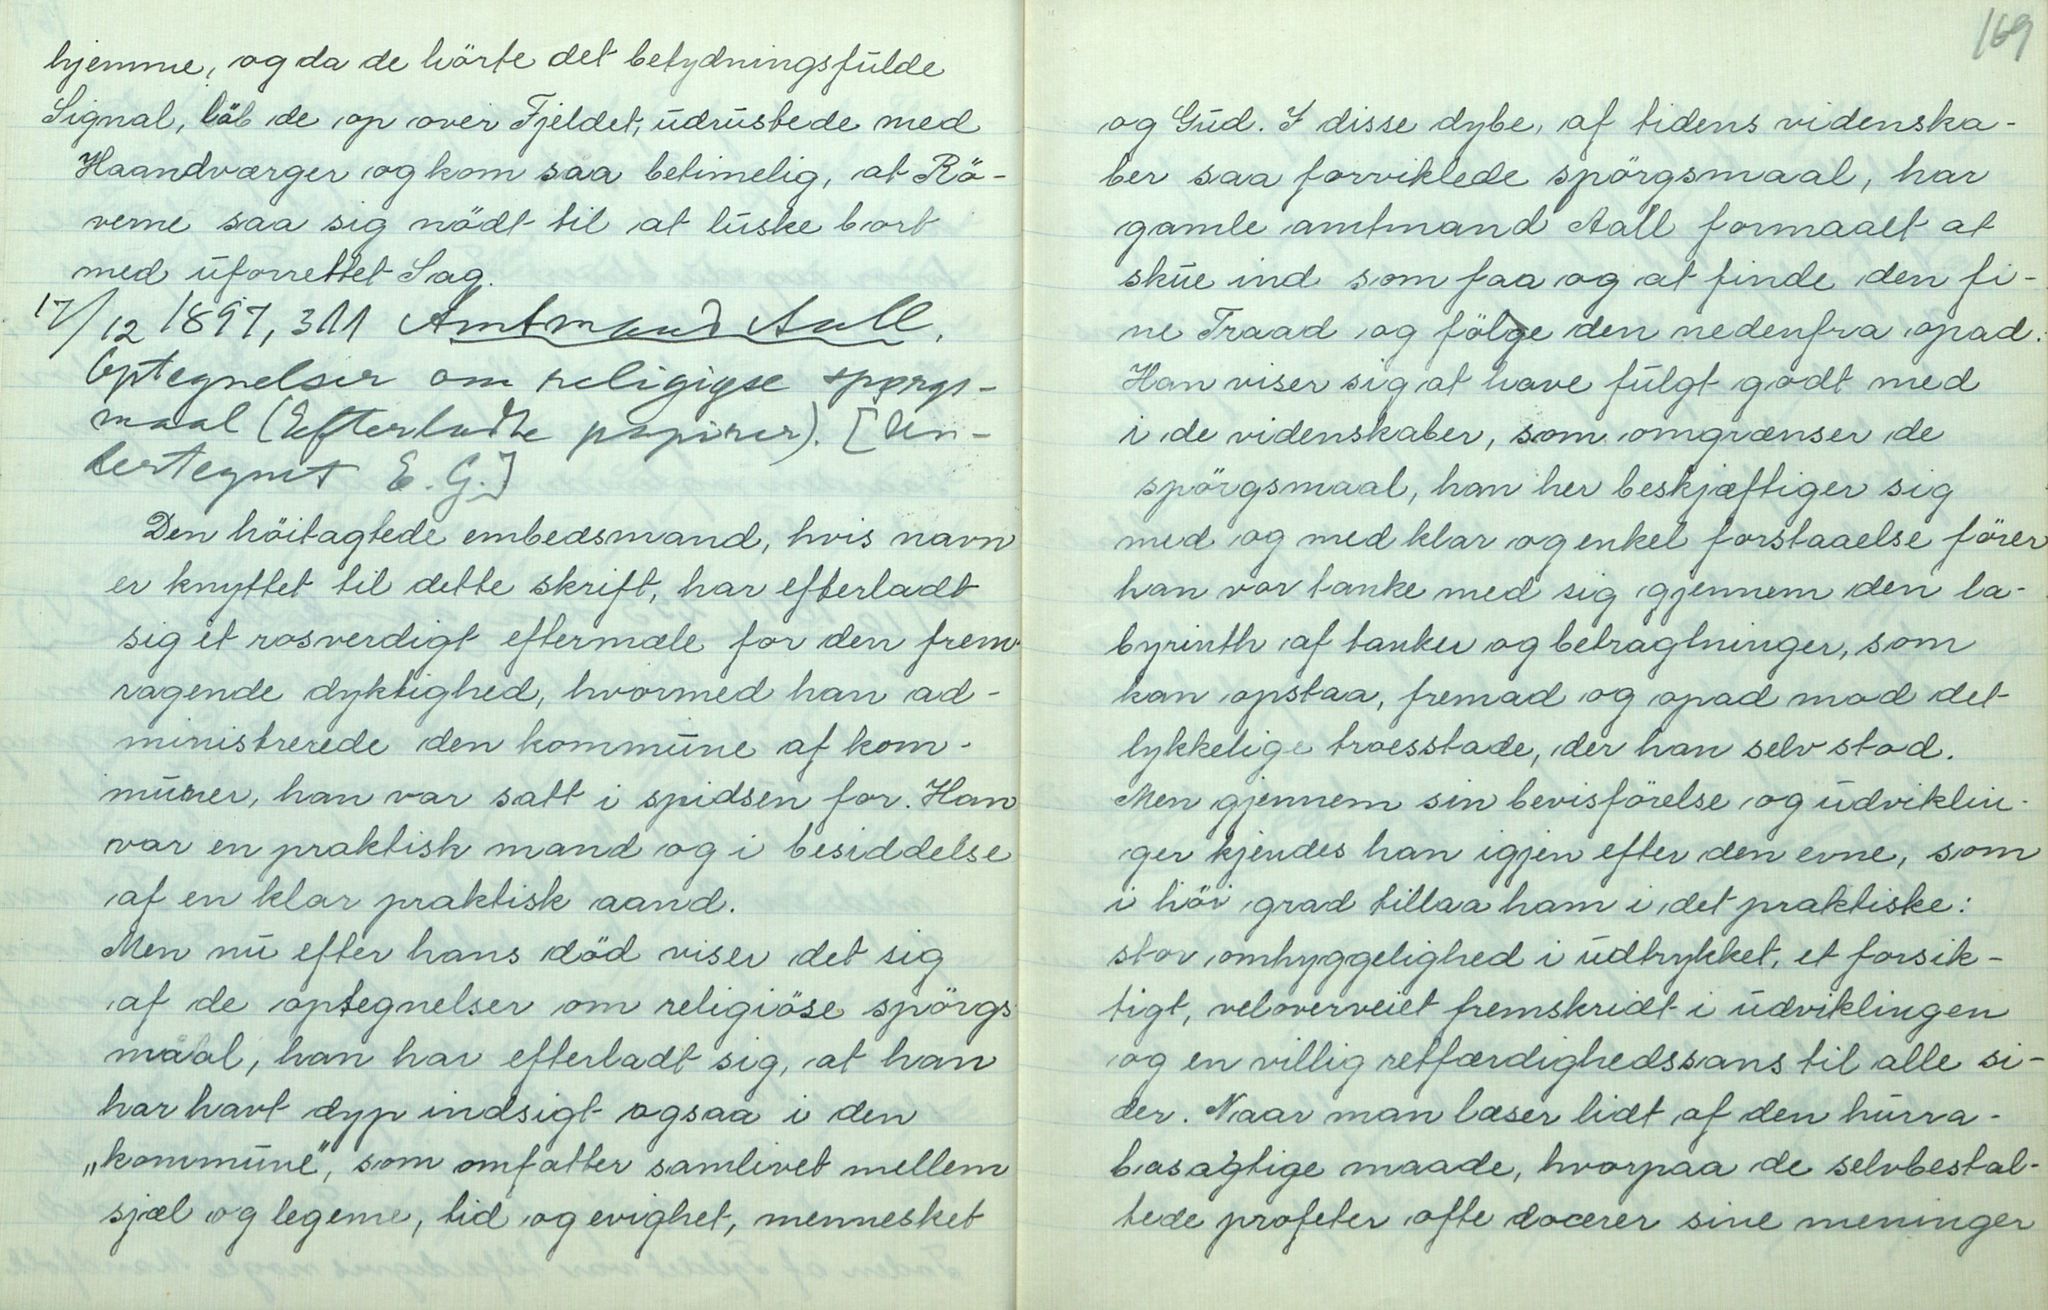 hjemme, og da de hörte det betydningsfulde
Signal, löb de op over Fjeldet, udrustede med
Haandværger og kom saa betimelig, at Rö-
verne saa sig nödt til at luske bort
med uforrettet Sag.
17/12 1897, 311 Amtmand Aall.
Optegnelser om religiøse spørgs-
maal (Efterladte papirer). [Un-
dertegnet E. G.]
Den höitagtede embedsmand, hvis navn
er knyttet til dette skrift, har efterladt
sig et rosverdigt eftermæle for den frem-
ragende dyktighed, hvormed han ad-
ministrerede den kommune af kom-
muner, han var satt i spidsen for. Han
var en praktisk mand og i besiddelse
af en klar praktisk aand.
Men nu efter hans död viser det sig
af de optegnelser om religiöse spörgs
maal, han har efterladt sig, at han
har havt dyp indsigt ogsaa i den
„kommune“, som omfatter samlivet mellem
sjæl og legeme, tid og evighet, mennesket
169
og Gud. I disse dybe, af tidens videnska-
ber saa forviklede spörgsmaal, har
gamle amtmand Aall formaaet at
skue ind som faa og at finde den fi-
ne Traad og fölge den nedenfra opad.
Han viser sig at have fulgt godt med
i de videnskaber, som omgrænser de
spörgsmaal, han her beskjæftiger sig
med og med klar og enkel forstaaelse förer
han vor tanke med sig gjennem den la-
byrinth af tanker og betragtninger, som
kan opstaa, fremad og opad mod det
lykkelige troesstade, der han selv stod.
Men gjennem sin bevisförelse og udviklin-
ger kjendes han igjen efter den evne, som
i höi grad tillaa ham i det praktiske:
stor omhyggelighed i udtrykket, et forsik-
tigt, veloverveiet fremskridt i udviklingen
og en villig retfærdighedssans til alle si-
der. Naar man læser lidt af den hurra-
basagtige maade, hvorpaa de selvbestal-
tede profeter ofte docerer sine meninger